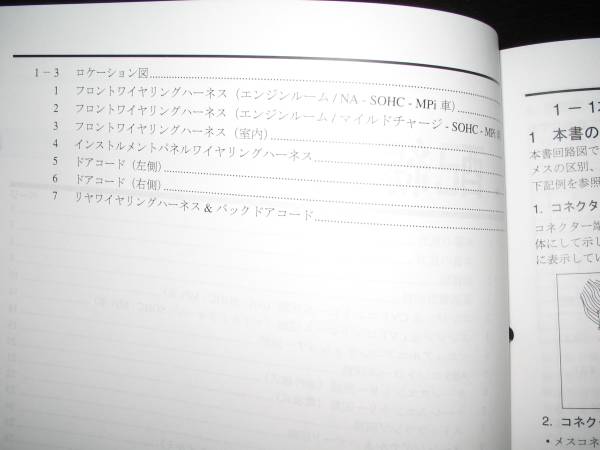 1－3 ロケーション図
1 フロントワイヤリングハーネス（エンジンルーム / NA - SOHC - MPi 車）
2 フロントワイヤリングハーネス（エンジンルーム / マイルドチャージ - SOHC - MPi
3 フロントワイヤリングハーネス（室内）
4 インストルメントパネルワイヤリングハーネス
5 ドアコード（左側）
6 ドアコード（右側）
7 リヤワイヤリングハーネス & バックドアコード
1－1
1 本書の
本書回路図で
メスの区別、
下記例を参照
1. コネクタ
コネクター端
体にして示し
に表示してい
2. コネク
・メスコネ